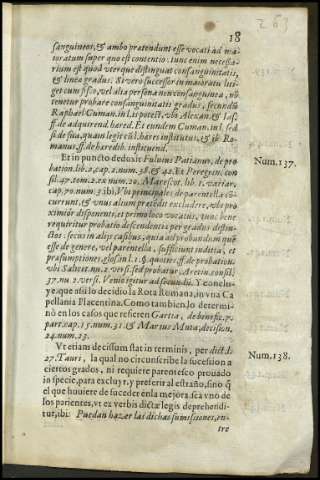 18
263
sanguineos, & ambo pretendunt esse vocati ad ma-
ioratum super quo est contentio: tunc enim necessa-
rium est quod vterque distinguat consanguinitatis,
& lineæ gradus: Si vero successor in maioratu liti-
get cum fisco, vel alia persona non consanguinea, nõ
tenetur probare consanguinitatis gradus, secundũ
Raphael Cuman. in l. is potest, vbi Alexan. & Ias.
ff. de adquirend. hæred. Et eundem Cuman. in l. sed
si de sua, quam legis cũ l. hæres institutus, & ib. Ro-
manus, ff. de hæredib. instituend.
Et in puncto deduxit Fulvius Patianus, de pro-
bation. lib. 2. cap. 2. num. 38. & 42. Et Peregrin. con-
sil. 47. tom. 2. ex num. 20. Marescot. lib. 1. variar.
cap. 70. num. 5. ibi: Vbi principales de parentella cõ-
currunt, & vnus alium prætẽdit excludere, vbi pro
ximior disponens, et primo loco vocatis, tunc bene
requiritur probatio descendentiæ per gradus distin-
ctos: secus in alijs casibus, quia ad probandum quẽ
esse de genere, vel parentella, sufficiunt inditia, et
præsumptiones, glos. in l. 1. §. quoties, ff. de probation.
vbi Salicet. nu. 2. versi. sed probatur, Aretin. consil.
37. nu. 2. versi. Venio igitur ad secundũ. Y conclu-
ye, que assi lo decidio la Rota Romana, in vna Ca
pellania Placentina. Como tambien lo determi-
nò en los casos que refieren Garcia, de benefic. p.
part. cap. 15. num. 31. & Marius Muta, decision.
24. num. 23.
Vt etiam decissum stat in terminis, per dict. l.
27. Tauri, la qual no circunscribe la sucession a
ciertos grados, ni requiere parentesco prouado
in specie, para excluyr, y preferir al estraño, sino q̃
el que huuiere de suceder en la mejora sea vno de
los parientes, vt ex verbis dictæ legis deprehendi-
tur, ibi: Puedan hazer las dichas sumissiones, en-
tre
Num. 137.
Num. 138.